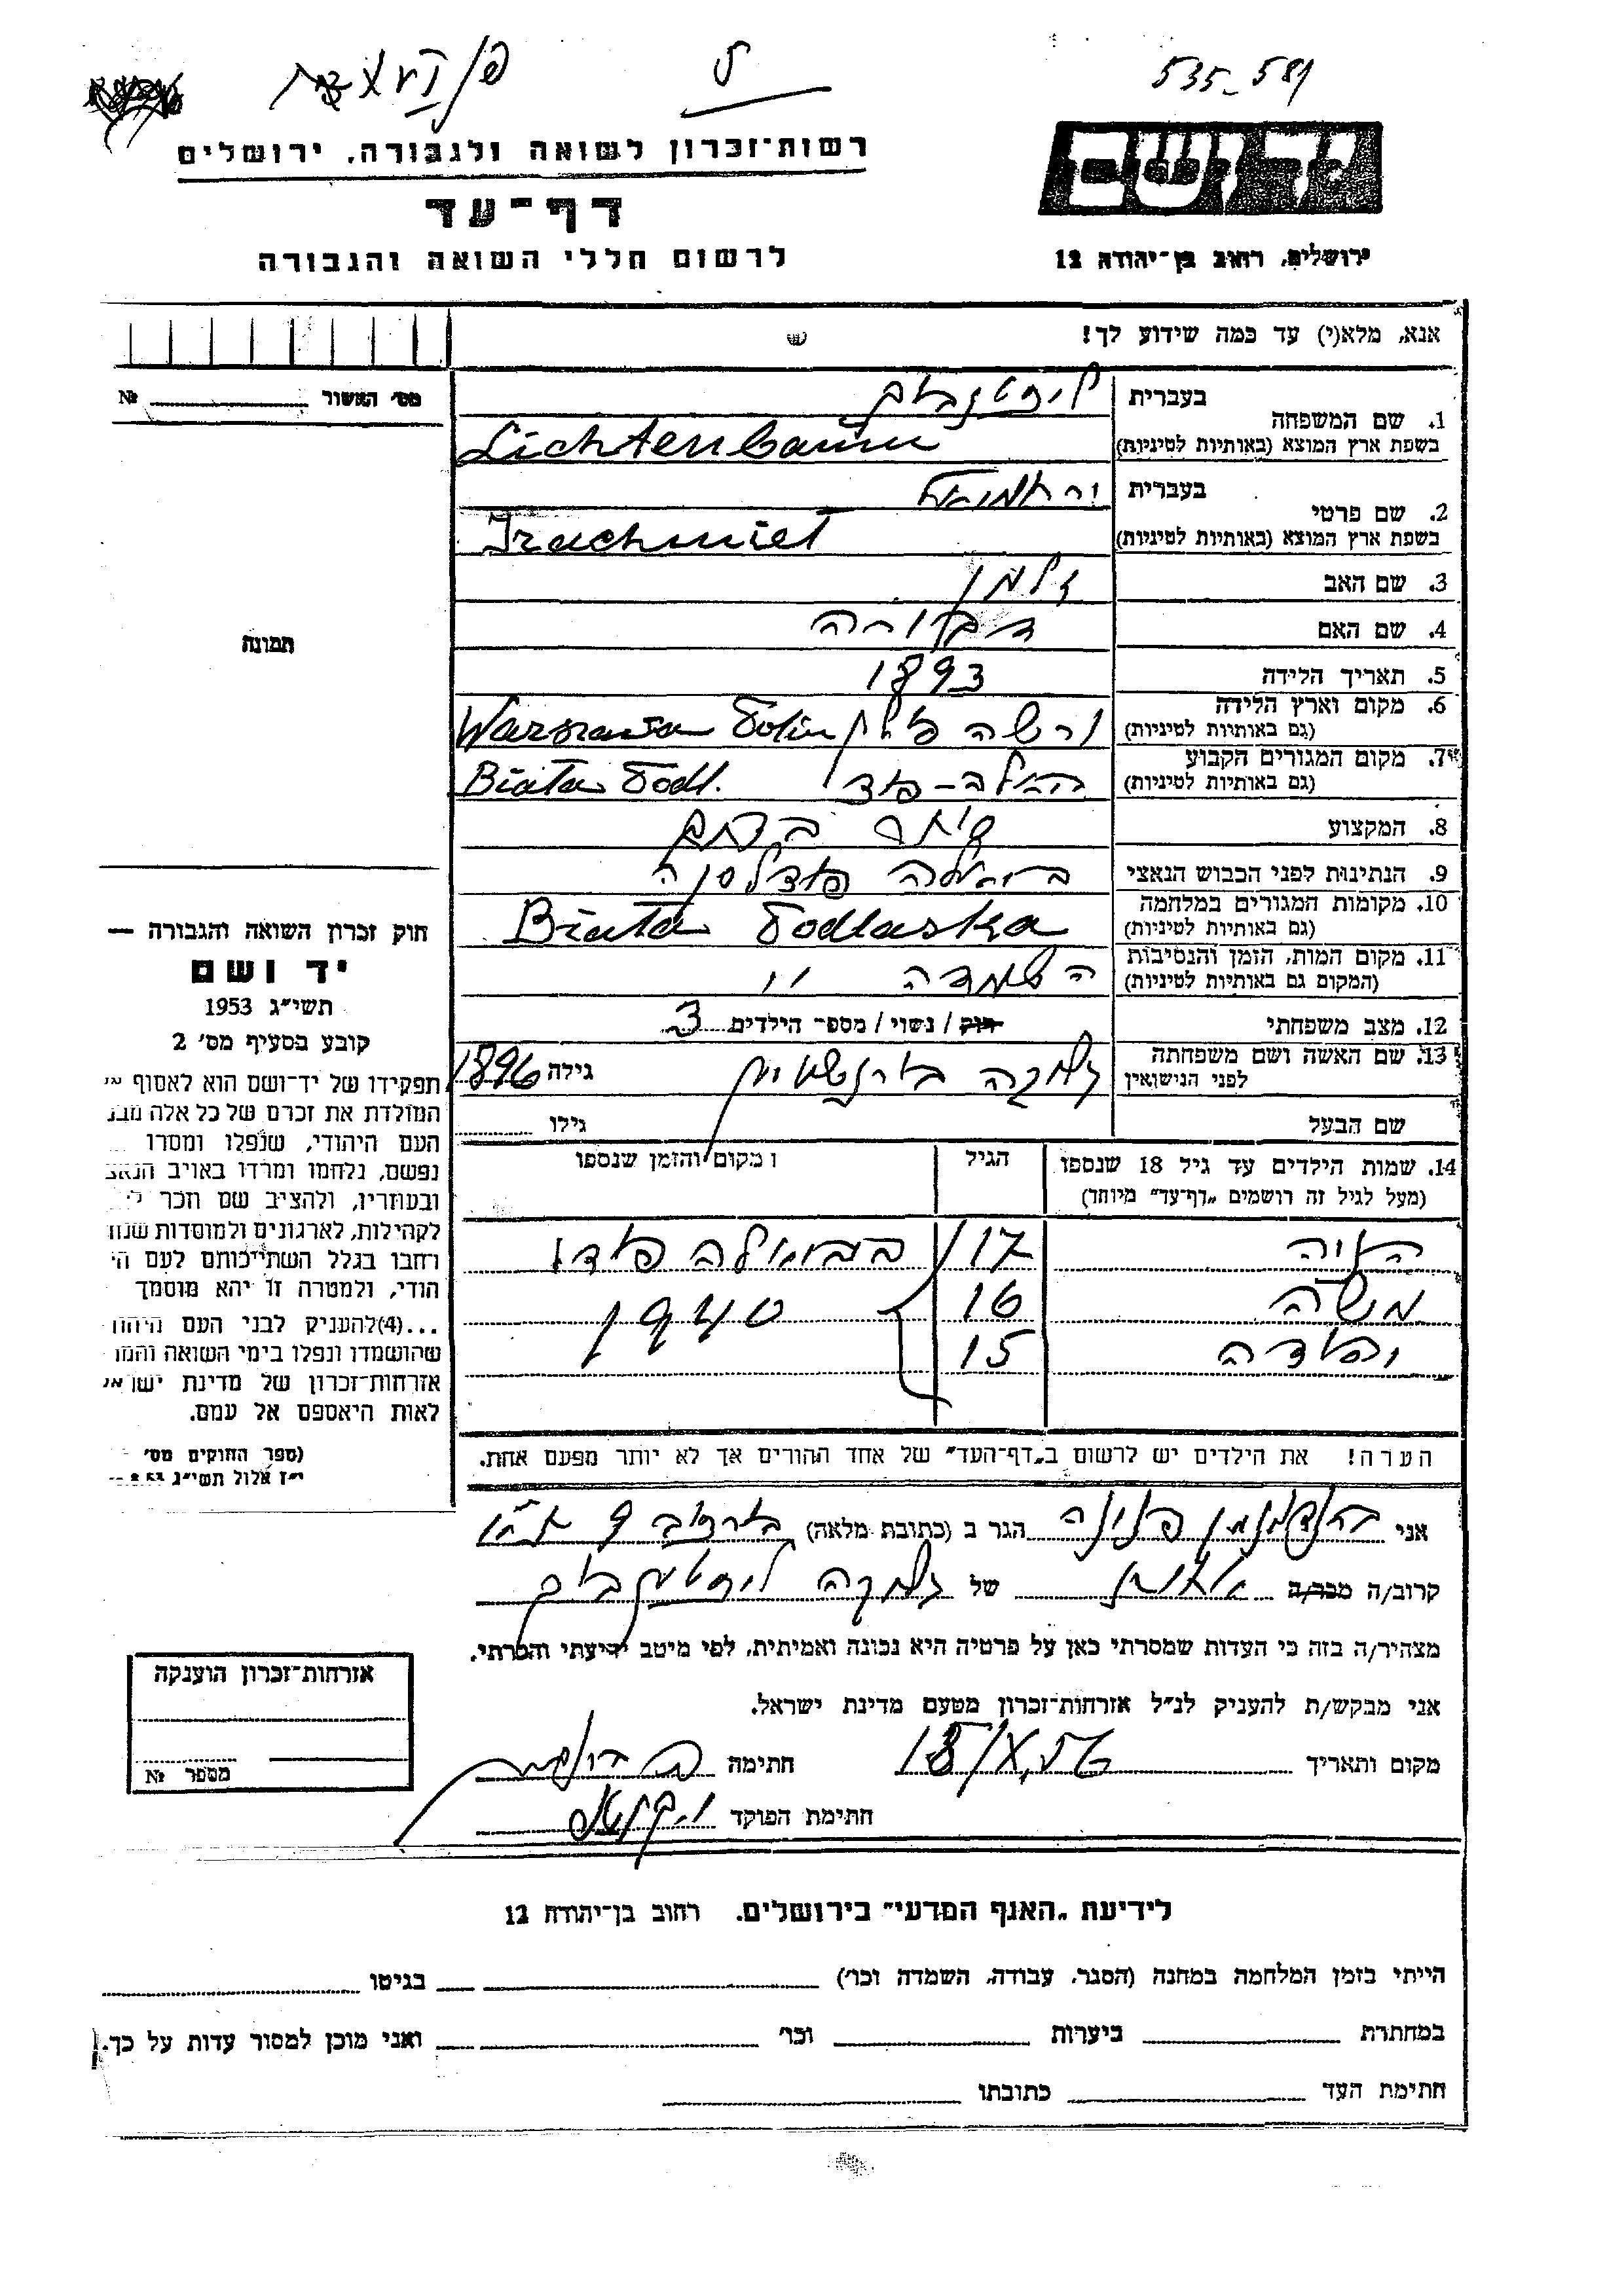 535-581
יד ושם
ירושלים, רחוב בן-יהודה 12
רשות-זכרון לשואה ולגבורה, ירושלים
דף-עד
לרשום חללי השואה והגבורה
אנא, מלא(י) עד כמה שידוע לך!
מס' האשור № 
1. שם המשפחה
בעברית ליכטנבוים
בשפת ארץ המוצא (באותיות לטיניות) Lichtenbaum
2. שם פרטי
בעברית ירחמיאל
בשפת ארץ המוצא (באותיות לטיניות) Irachmieł
3. שם האב זלמן
4. שם האם דבורה
5. תאריך הלידה 1893
6. מקום וארץ הלידה (גם באותיות לטיניות) ורשה פולין Warszawa Polin
7. מקום המגורים הקבוע (גם באותיות לטיניות) Biała Podl.
8. המקצוע
9. הנתינות לפני הכבוש הנאצי ביאלה פודלסקה
10. מקומות המגורים במלחמה (גם באותיות לטיניות) Biała Podlaska
11. מקום המות, הזמן והנסיבות (המקום גם באותיות לטיניות) השמדה
12. מצב משפחתי רוק / נשוי / מספר הילדים 3
13. שם האשה ושם משפחתה לפני הנישואין גילה 1896
שם הבעל גילו
14. שמות הילדים עד גיל 18 שנספו (מעל לגיל זה רושמים "דף-עד" מיוחד) הגיל מקום והזמן שנספו
חיה 17 בביאלה פודל
משה 16 1940
יהודה 15
הערה! את הילדים יש לרשום ב"דף-העד" של אחד ההורים אך לא יותר מפעם אחת.
תמונה
חוק זכרון השואה והגבורה —
יד ושם
תשי"ג 1953
קובע בסעיף מס' 2
תפקידו של יד-ושם הוא לאסוף אל
המולדת את זכרם של כל אלה מבני
העם היהודי, שנפלו ומסרו
נפשם, נלחמו ומרדו באויב הנאצי
ובעוזריו, ולהציב שם וזכר
לקהילות, לארגונים ולמוסדות שנח
רחבו בגלל השתייכותם לעם הי
הודי, ולמטרה זו יהא מוסמך
...(4) להעניק לבני העם היהודי
שהושמדו ונפלו בימי השואה והמרי
אזרחות-זכרון של מדינת ישראל
לאות היאספם אל עמם.
(ספר החוקים מס'
י"ז אלול תשי"ג
אני פנינה הגר ב (כתובת מלאה)
קרוב/ה מכר/ה של ליכטנבוים
מצהיר/ה בזה כי העדות שמסרתי כאן על פרטיה היא נכונה ואמיתית, לפי מיטב ידיעתי והכרתי.
אני מבקש/ת להעניק לנ"ל אזרחות-זכרון מטעם מדינת ישראל.
מקום ותאריך 13/X.56 חתימה
חתימת הפוקד
אזרחות-זכרון הוענקה
מספר №
לידיעת "האגף המדעי" בירושלים. רחוב בן-יהודה 12
הייתי בזמן המלחמה במחנה (הסגר, עבודה, השמדה וכו') בגיטו
במחתרת ביערות וכו' ואני מוכן למסור עדות על כך.
חתימת העד כתובתו